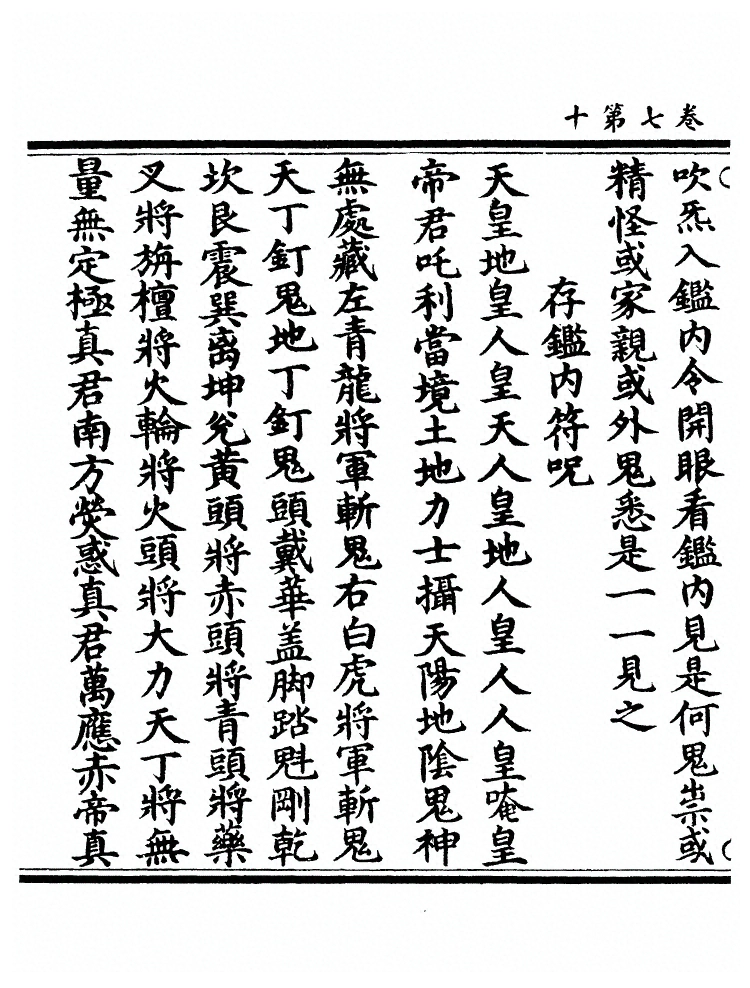 卷七第十
吹炁入鑑內令開眼看鑑內見是何鬼祟或
精怪或家親或外鬼悉是一一見之
存鑑內符呪
天皇地皇人皇天人皇地人皇人人皇唵皇
帝君吒利當境土地力士攝天陽地陰鬼神
無處藏左青龍將軍斬鬼右白虎將軍斬鬼
天丁釘鬼地丁釘鬼頭戴華盖脚踏魁剛乾
坎艮震巽离坤兊黄頭將赤頭將青頭將藥
叉將旃檀將火輪將火頭將大力天丁將無
量無定極真君南方熒惑真君萬應赤帝真